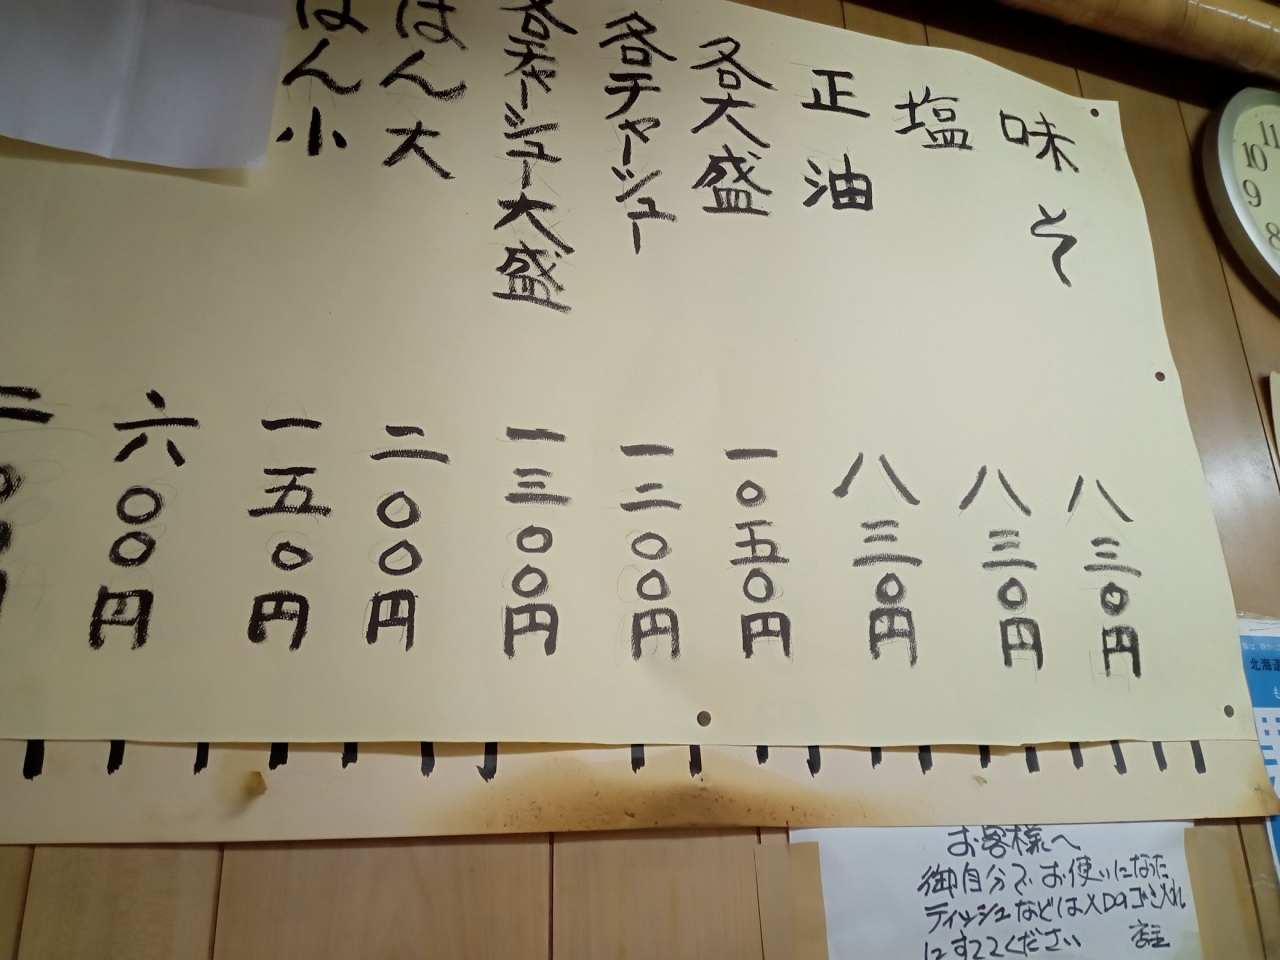 味そ 八三〇円
塩 八三〇円
正油 八三〇円
各大盛 一〇五〇円
各チャーシュー 一二〇〇円
各チャーシュー大盛 一三〇〇円
はん大 二〇〇円
はん小 一五〇円
六〇〇円
お客様へ
御自分でお使いになった
ティッシュなどは入口のゴミ入れ
にすててください 店主
11
10
9
8
北海道